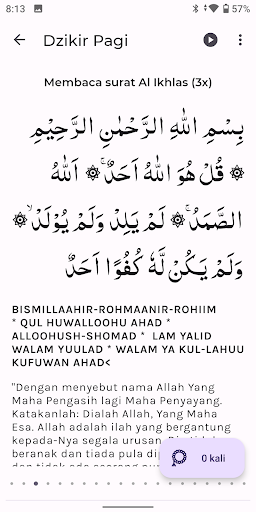 8:13
57%
Dzikir Pagi
Membaca surat Al Ikhlas (3x)
بِسْمِ اللهِ الرَّحْمٰنِ الرَّحِيْمِ
۞ قُلْ هُوَ اللهُ اَحَدٌۚ ۞ اَللهُ
الصَّمَدُۚ ۞ لَمْ يَلِدْ وَلَمْ يُوْلَدْۙ ۞
وَلَمْ يَكُنْ لَّهٗ كُفُوًا اَحَدٌ
BISMILLAAHIR-ROHMAANIR-ROHIIM
* QUL HUWALLOOHU AHAD *
ALLOOHUSH-SHOMAD * LAM YALID
WALAM YUULAD * WALAM YA KUL-LAHUU
KUFUWAN AHAD<
"Dengan menyebut nama Allah Yang
Maha Pengasih lagi Maha Penyayang.
Katakanlah: Dialah Allah, Yang Maha
Esa. Allah adalah ilah yang bergantung
kepada-Nya segala urusan.
beranak dan tiada pula dip
dan tidak ada seorang pun
0 kali